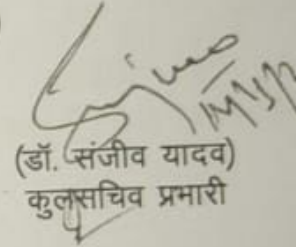 (डॉ. संजीव यादव)
कुलसचिव प्रभारी